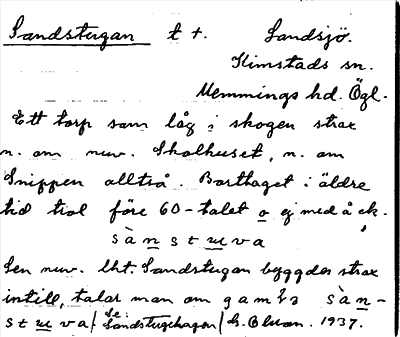 Sandstugan t t. Landsjö.
Kimstads sn.
Memmings hd. Ögl.
Ett torp som låg i skogen strax
n. om nuv. Skolhuset, n. om
Snippen alltså. Borttaget i äldre
tid trol före 60-talet o ej med å ek.
sànstuva
Sen nuv. lht. Sandstugan byggdes strax
intill, talar man om gamla sàn-
stuva/ Se: Sandstugehagen/ G. Eluan. 1937.